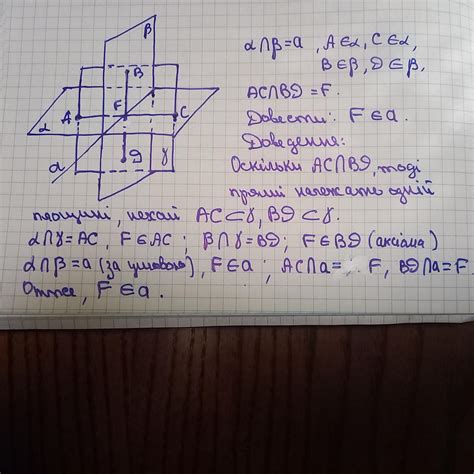 α∩β=a, A∈α, C∈α,
B∈β, D∈β,
AC∩BD=F.
Довести: F∈a.
Доведення:
Оскільки AC∩BD, тоді
прямі належать одній
площині, нехай AC⊂γ, BD⊂γ.
α∩γ=AC, F∈AC; β∩γ=BD; F∈BD (аксіома)
α∩β=a (за умовою), F∈a; AC∩a= F, BD∩a=F
Отже, F∈a.
β
B
A
F
C
α
D
γ
a